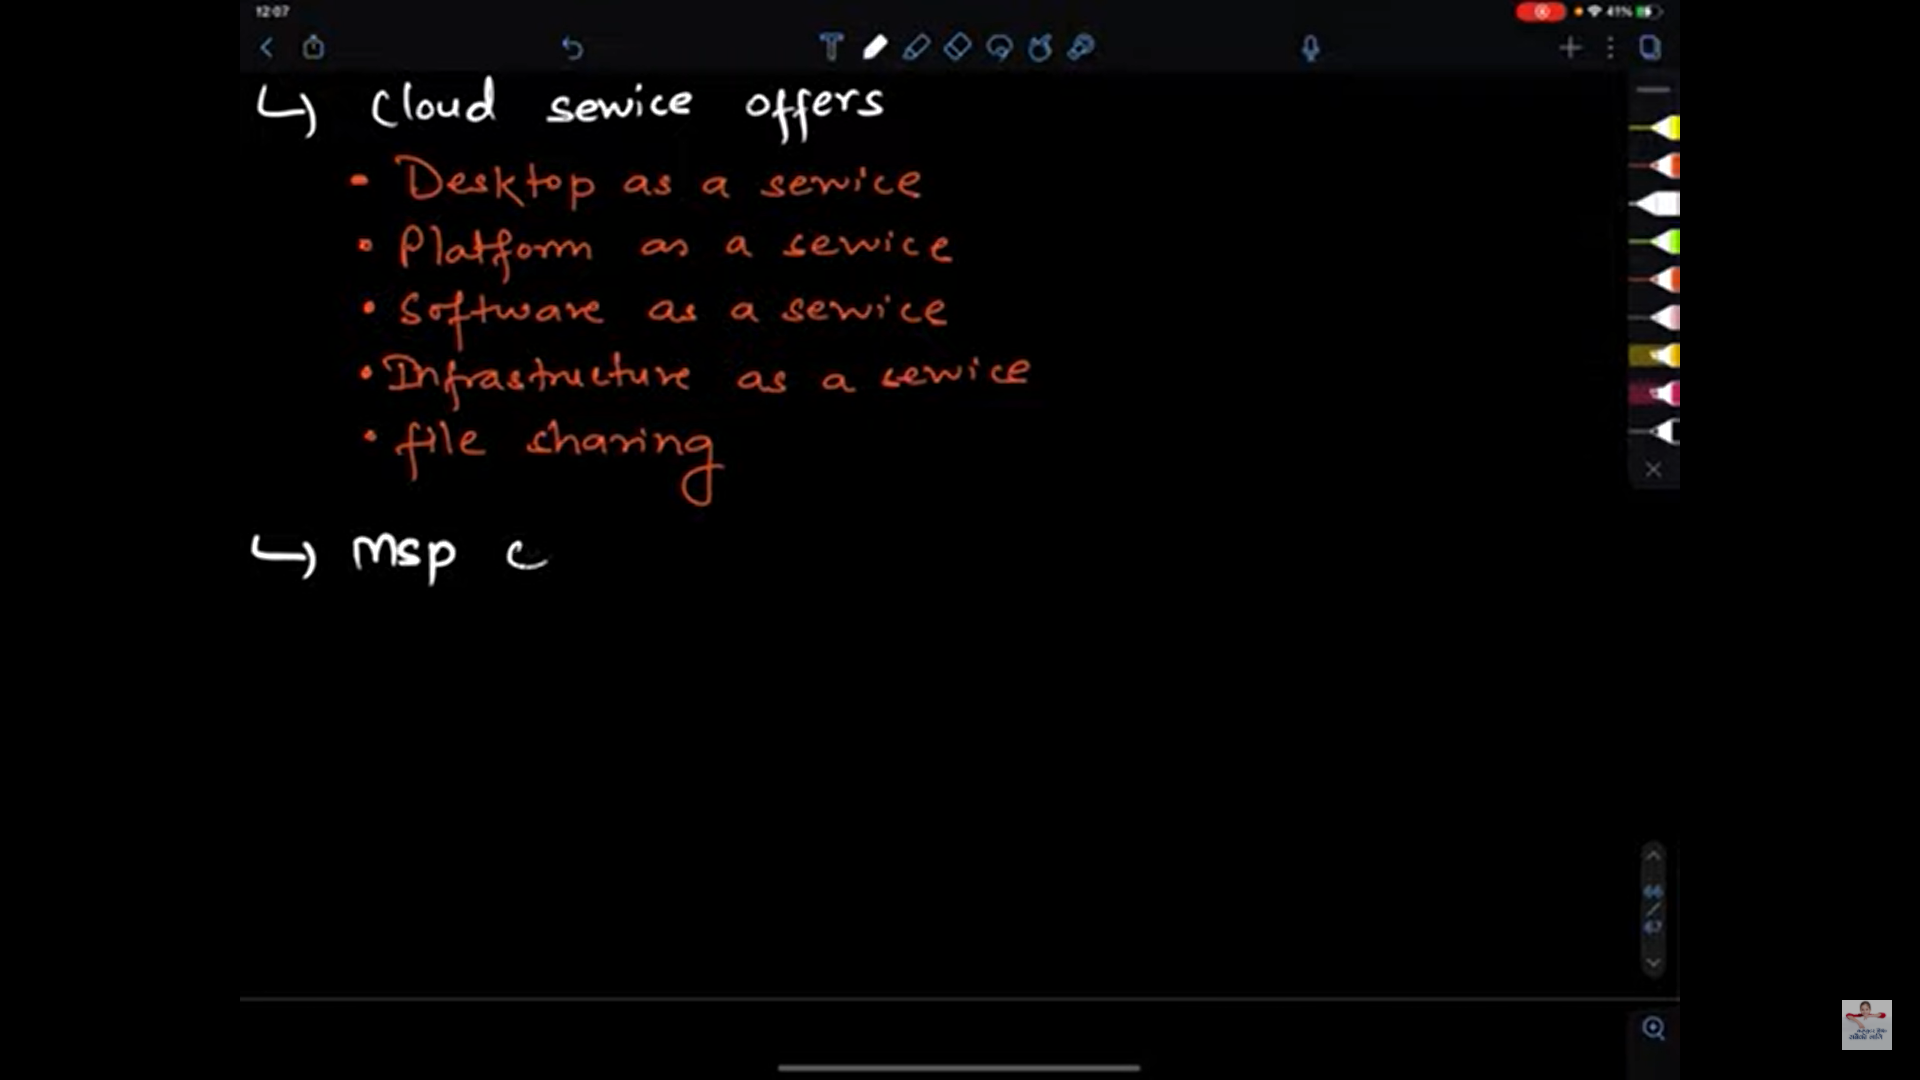 12:07
41%
↳ Cloud service offers
- Desktop as a service
• Platform as a service
• Software as a service
• Infrastructure as a service
• file sharing
↳ msp c
66
/
67